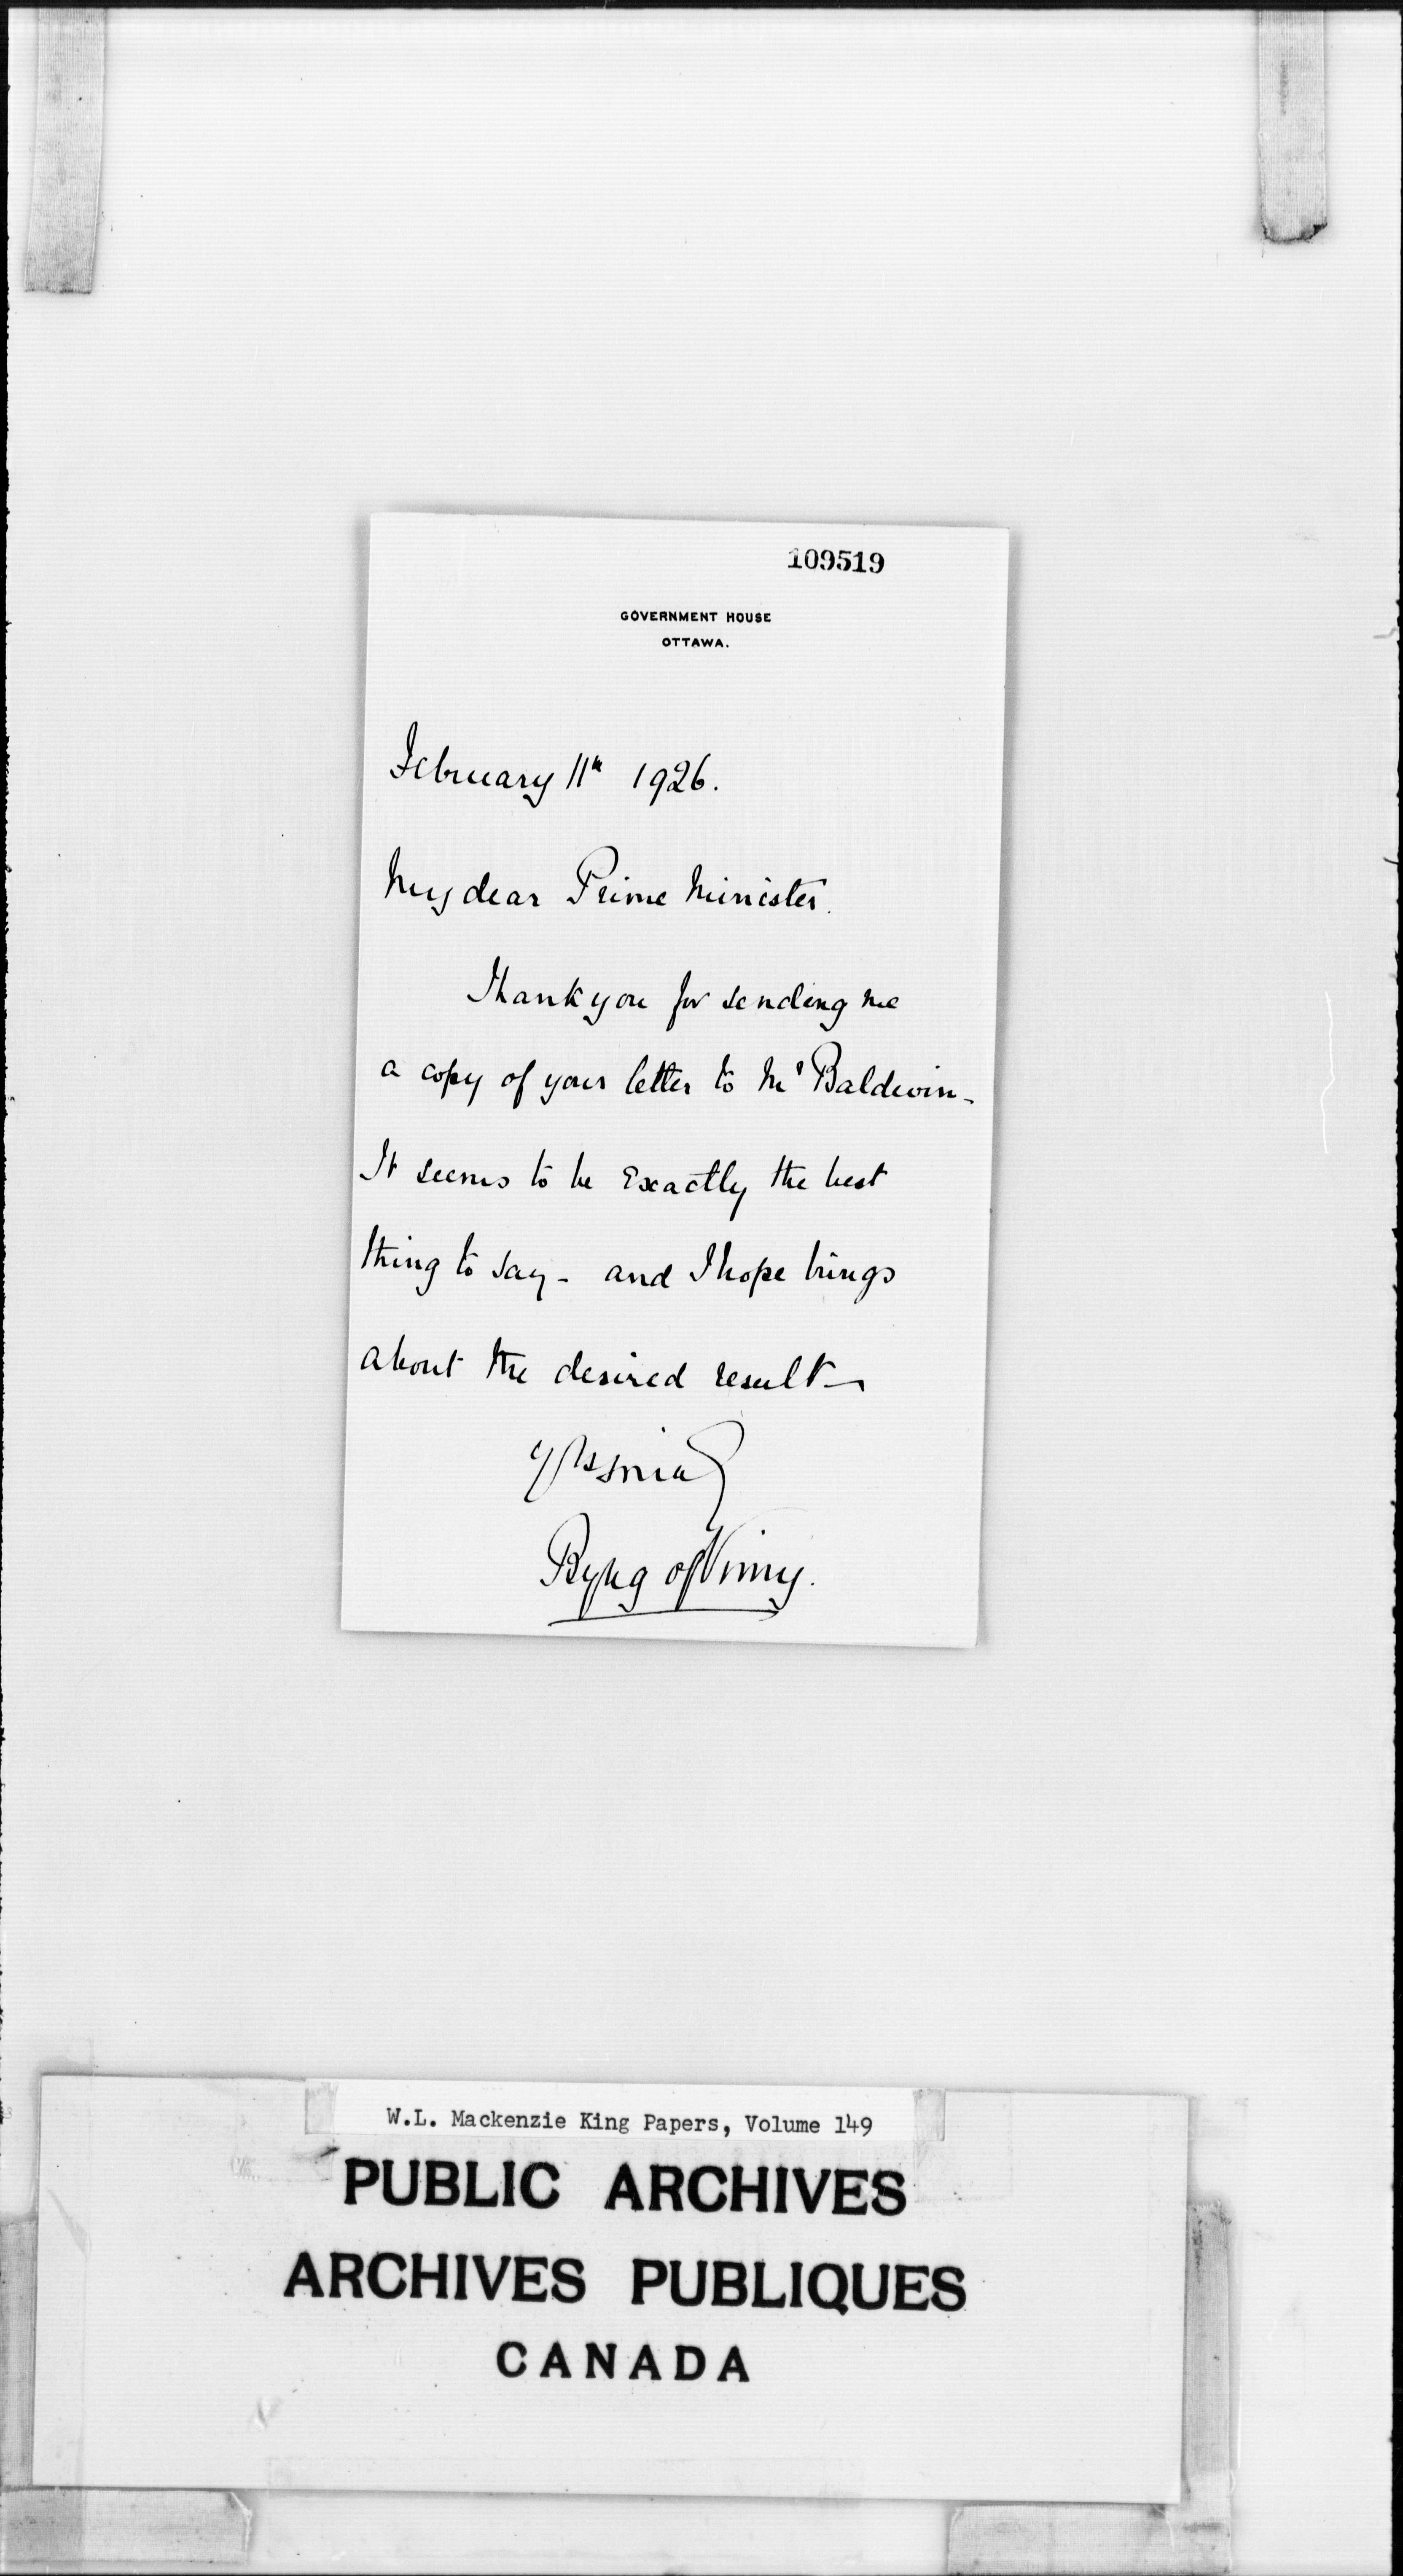 109519
GOVERNMENT HOUSE
OTTAWA.
February 11th 1926.
My dear Prime Minister.
Thank you for sending me
a copy of your letter to Mr Baldwin -
It seems to be exactly the best
thing to say - and I hope brings
about the desired result -
Yrs sincly
Byng of Vimy.
W.L. Mackenzie King Papers, Volume 149
PUBLIC ARCHIVES
ARCHIVES PUBLIQUES
CANADA